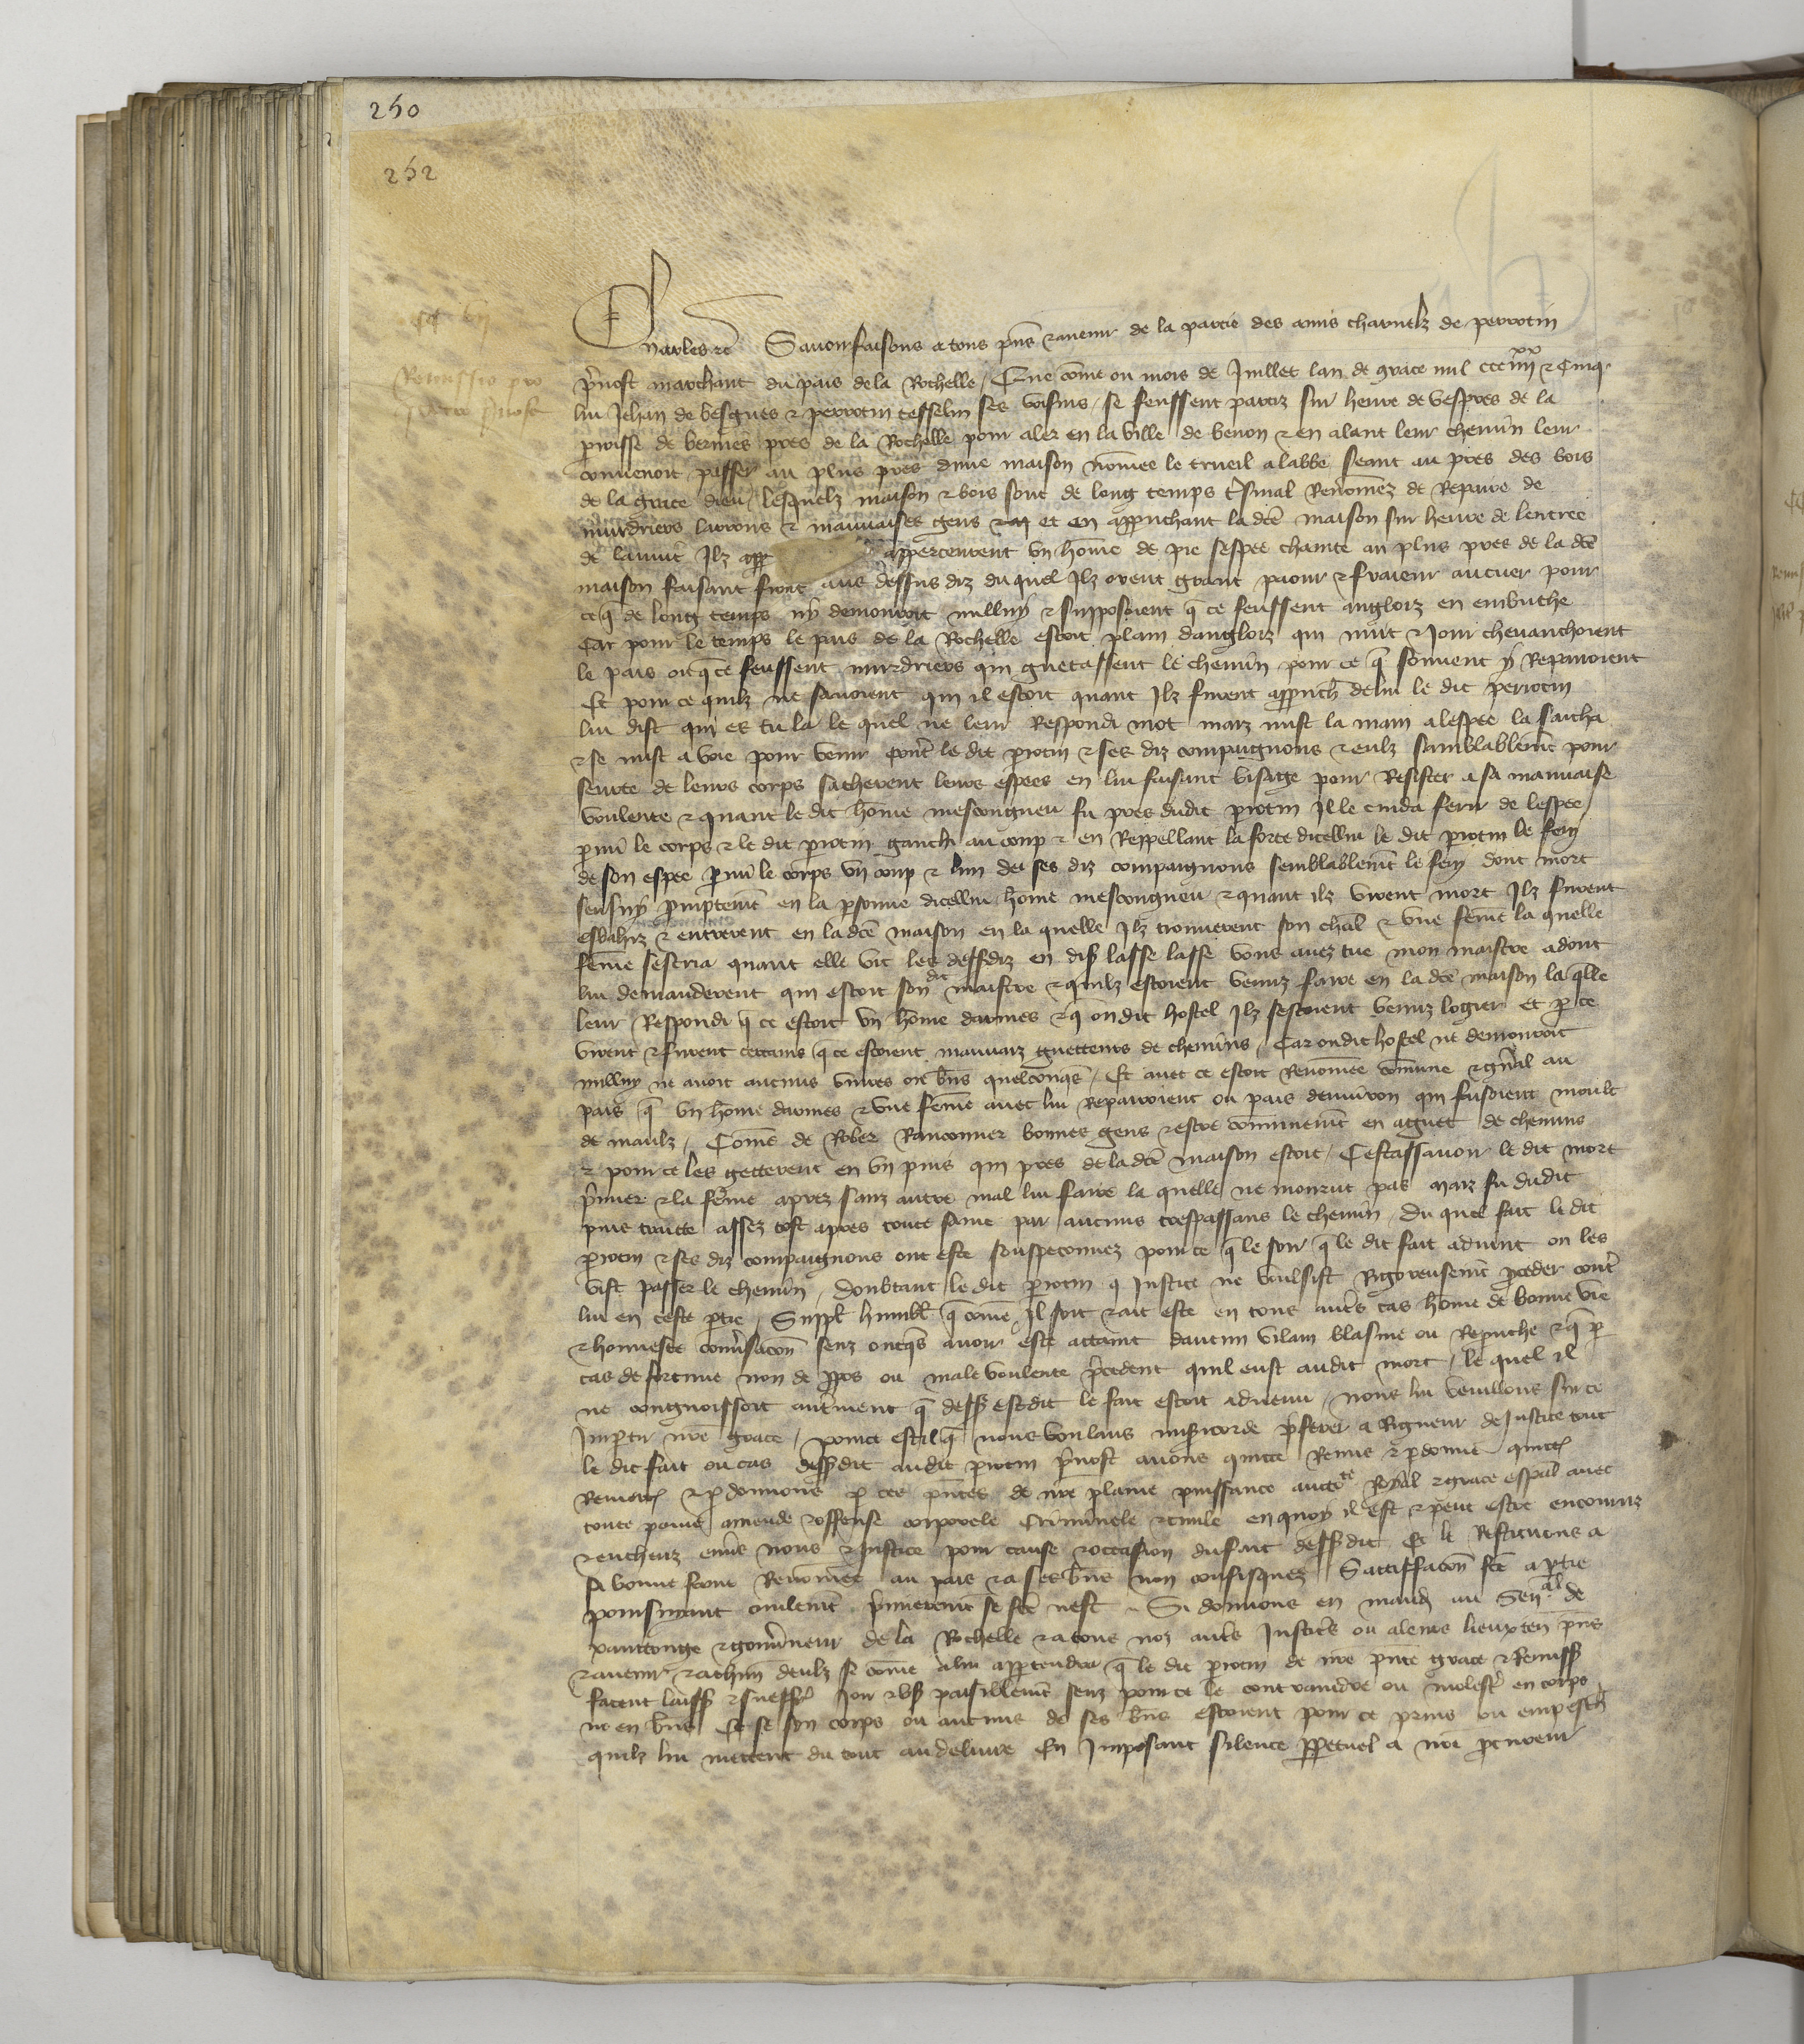 250
252
CC VII
Remissio pro
Charles etc Savoir faisons a tous pñs et avenir de la partie des amis charnelz de perrotin
p̃vost marchant du pais de la Rochelle / Que cõme ou mois de Juillet lan de grace mil ccc iiii xx et Cinq
lui Jehan de besgues et perrotin tesselin ses voisins se feussent partiz sur heure de vespres de la
parroisse de bernes pres de la Rochelle pour aler en la ville de benon et en alant leur chemin leur
convenoit passer au plus pres dune maison nõmee le trueil a labbe seant au pres des bois
de la grace dieu / lesquelz maison et bois sont de long temps t̃smal Renõmez de Repaire de
murdriers larrons et mauvaises gens et en approuchant la dc̃e maison sur heure de lentree
de la nuit Ilz appercevrent un hõme de pie sespee chainte au plus pres de la dc̃e
maison faisant front aus dessus diz du quel Ilz orent grant paour et fraieur au cuer pour
ce q̃ de long temps ny demouroit nulluy et supposoient q̃ ce feussent angloiz en embuche
Car pour le temps le pais de la Rochelle estoit plain dangloiz qui nuit et jour chevauchoient
le pais ou q̃ ce feussent murdriers qui guetassent le chemin pour ce q̃ souvent y Repairoient
Et pour ce quilz ne savoient qui il estoit quant Ilz furent approuch̃ de lui le dit perrotin
lui dist qui es tu la le quel ne leur Respondi mot maiz mist la main a lespee la saicha
et se mist a voie pour venir cont̃ le dit p̱rotin et ses diz compaignons et eulz samblablem̃t pour
seurte de leurs corps sacherent leurs espees en lui faisant visaige pour Resister a sa mauvaise
voulente et quant le dit hõme mescongneu fu pres dudit p̱rotin Il le cuida ferir de lespee
p̱mi le corps et le dit p̱rotin gauchi au coup et en Reppellant la force dicellui le dit p̱rotin le feri
de son espee p̱mi le corps un coup et lun de ses diz compaignons semblablem̃t le feri dont mort
sensuy promptem̃t en la p̱sonne dicellui hõme mescongneu et quant ilz virent mort Ilz furent
esbahiz et entrerent en la dc̃e maison en la quelle Ilz trouverent son chal̃ et une fem̃e la quelle
fem̃e sescria quant elle vit les dessdiz en dis̃ lasse lasse vous avez tue mon maistre adont
lui demanderent qui estoit son dit maistre et quilz estoient venuz faire en la dc̃e maison la q̃lle
leur Respondi q̃ ce estoit un hõme darmes et q̃ ou dit hostel Ilz sestoient venuz logier et p̱ ce
virent et furent certains q̃ ce estoient mauvaiz guetteurs de chemins / Car ou dit hostel ne demouroit
nulluy ne avoit aucuns vivres ou bñs quelconq̃s / Et avec ce estoit Renõmee cõmune et gñal au
pais q̃ un hõme darmes et une fem̃e avec lui Repairoient ou pais denviron qui faisoient moult
de maulz / Cõme de Rober Ranconner bonnes gens et estre cõmunem̃t en aguet de chemins
et pour ce les getterent en un puis qui pres de la dc̃e maison estoit / Cestassavoir le dit mort
p̃mier et la fem̃e aprez sanz autre mal lui faire la quelle ne mourut pas maiz fu dudit
puis traitte assez tost apres toute saine par aucuns trespassans le chemin / Du quel fait le dit
p̱rotin et ses diz compaignons ont este souspeconnez pour ce q̃ le soir q̃ le dit fait advint on les
vist passer le chemin / Doubtant le dit p̱rotin q̃ Justice ne voulsist Rigoreusem̃t p̱ceder cont̃
lui en ceste p̱tie / Suppl̃ humbl̃ q̃ cõme Il soit et ait este en tous aut̃s cas hõme de bonne vie
et honneste conṽsacõn senz oncq̃s avoir este attaint daucun vilain blasme ou Reprouche et q̃ p̱
cas de fortune non de p̱pos ou male voulente p̃cedent quil eust audit mort / le quel il
ne congnoissoit aut̃ment q̃ dess̃ est dit le fait estoit advenu / nous lui veuillons sur ce
Imp̱tir nr̃e grace / pource est il q̃ nous voulans mis̃icorde p̃ferer a Rigueur de Justice tout
le dit fait ou cas dess̃dit audit p̱rotin p̃vost avons quitte Remis et p̱donne quitt̃s
Remett̃s et p̱donnons p̱ ces pñtes de nr̃e plaine puissance auct̃te Royal et grace esp̃al avec
toute paine amende et offense corporele Criminele et civile en quoy il est et peut estre encouruz
et encheuz enṽs nous et Justice pour cause et occasion du fait dess̃dit Et le Restituons a
sa bonne fame Renõmee au pais et a ses bñs non confisquez Sattiffacõn fc̃e a p̱tie
poursuivant civilem̃t p̃mierem̃t se fc̃e nest Si donnons en mand̃ au Sen̄al de
xanctonge et gouv̄neur de la Rochelle et a tous noz aut̃s Justic̃rs ou a leurs lieuxten̄ pñs
et avenir et a chun̄ deulz si cõme a lui app̱tendra q̃ le dit p̱rotin de nr̃e pñte grace et Remiss̃
facent laiss̃ et sueffr̃ Joir et us̃ paisiblem̃t senz pour ce le contraindre ou molest̃ en corps
ne en bñs Et se son corps ou aucuns de ses bñs estoient pour ce prins ou empesch̃
quilz lui mettent du tout au delivre En Imposant silence pp̱etuel a nr̃e p̱cureur